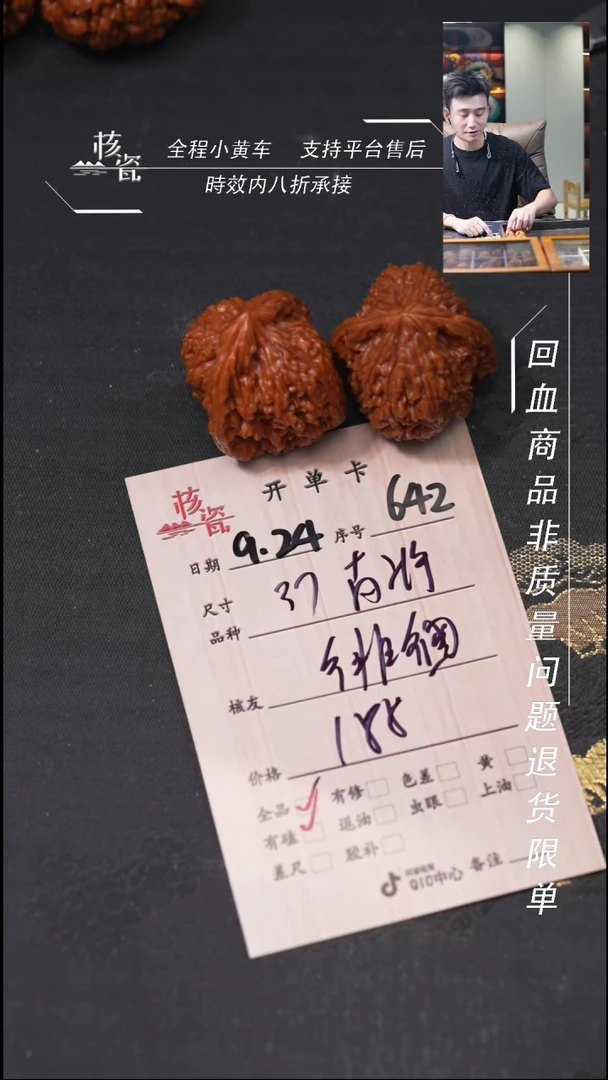 核瓷
全程小黄车 支持平台售后
時效内八折承接
回血商品非质量问题退货限单
核瓷
开单卡
日期 9.24 序号 642
尺寸 37 南将
品种
核友
188
价格
全品 有修 色差 黄
有磕 返油 虫眼 上油
差尺 胶补
QIC中心 备注